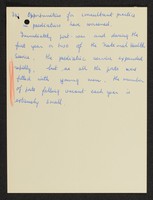 Opportunities for consultant practice
in paediatrics have worsened.
Immediately post-war and during the
first years of the National Health
Service, the paediatric service expanded
rapidly, but as all the posts are
filled with young men, the number
of posts falling vacant each year is
extremely small.